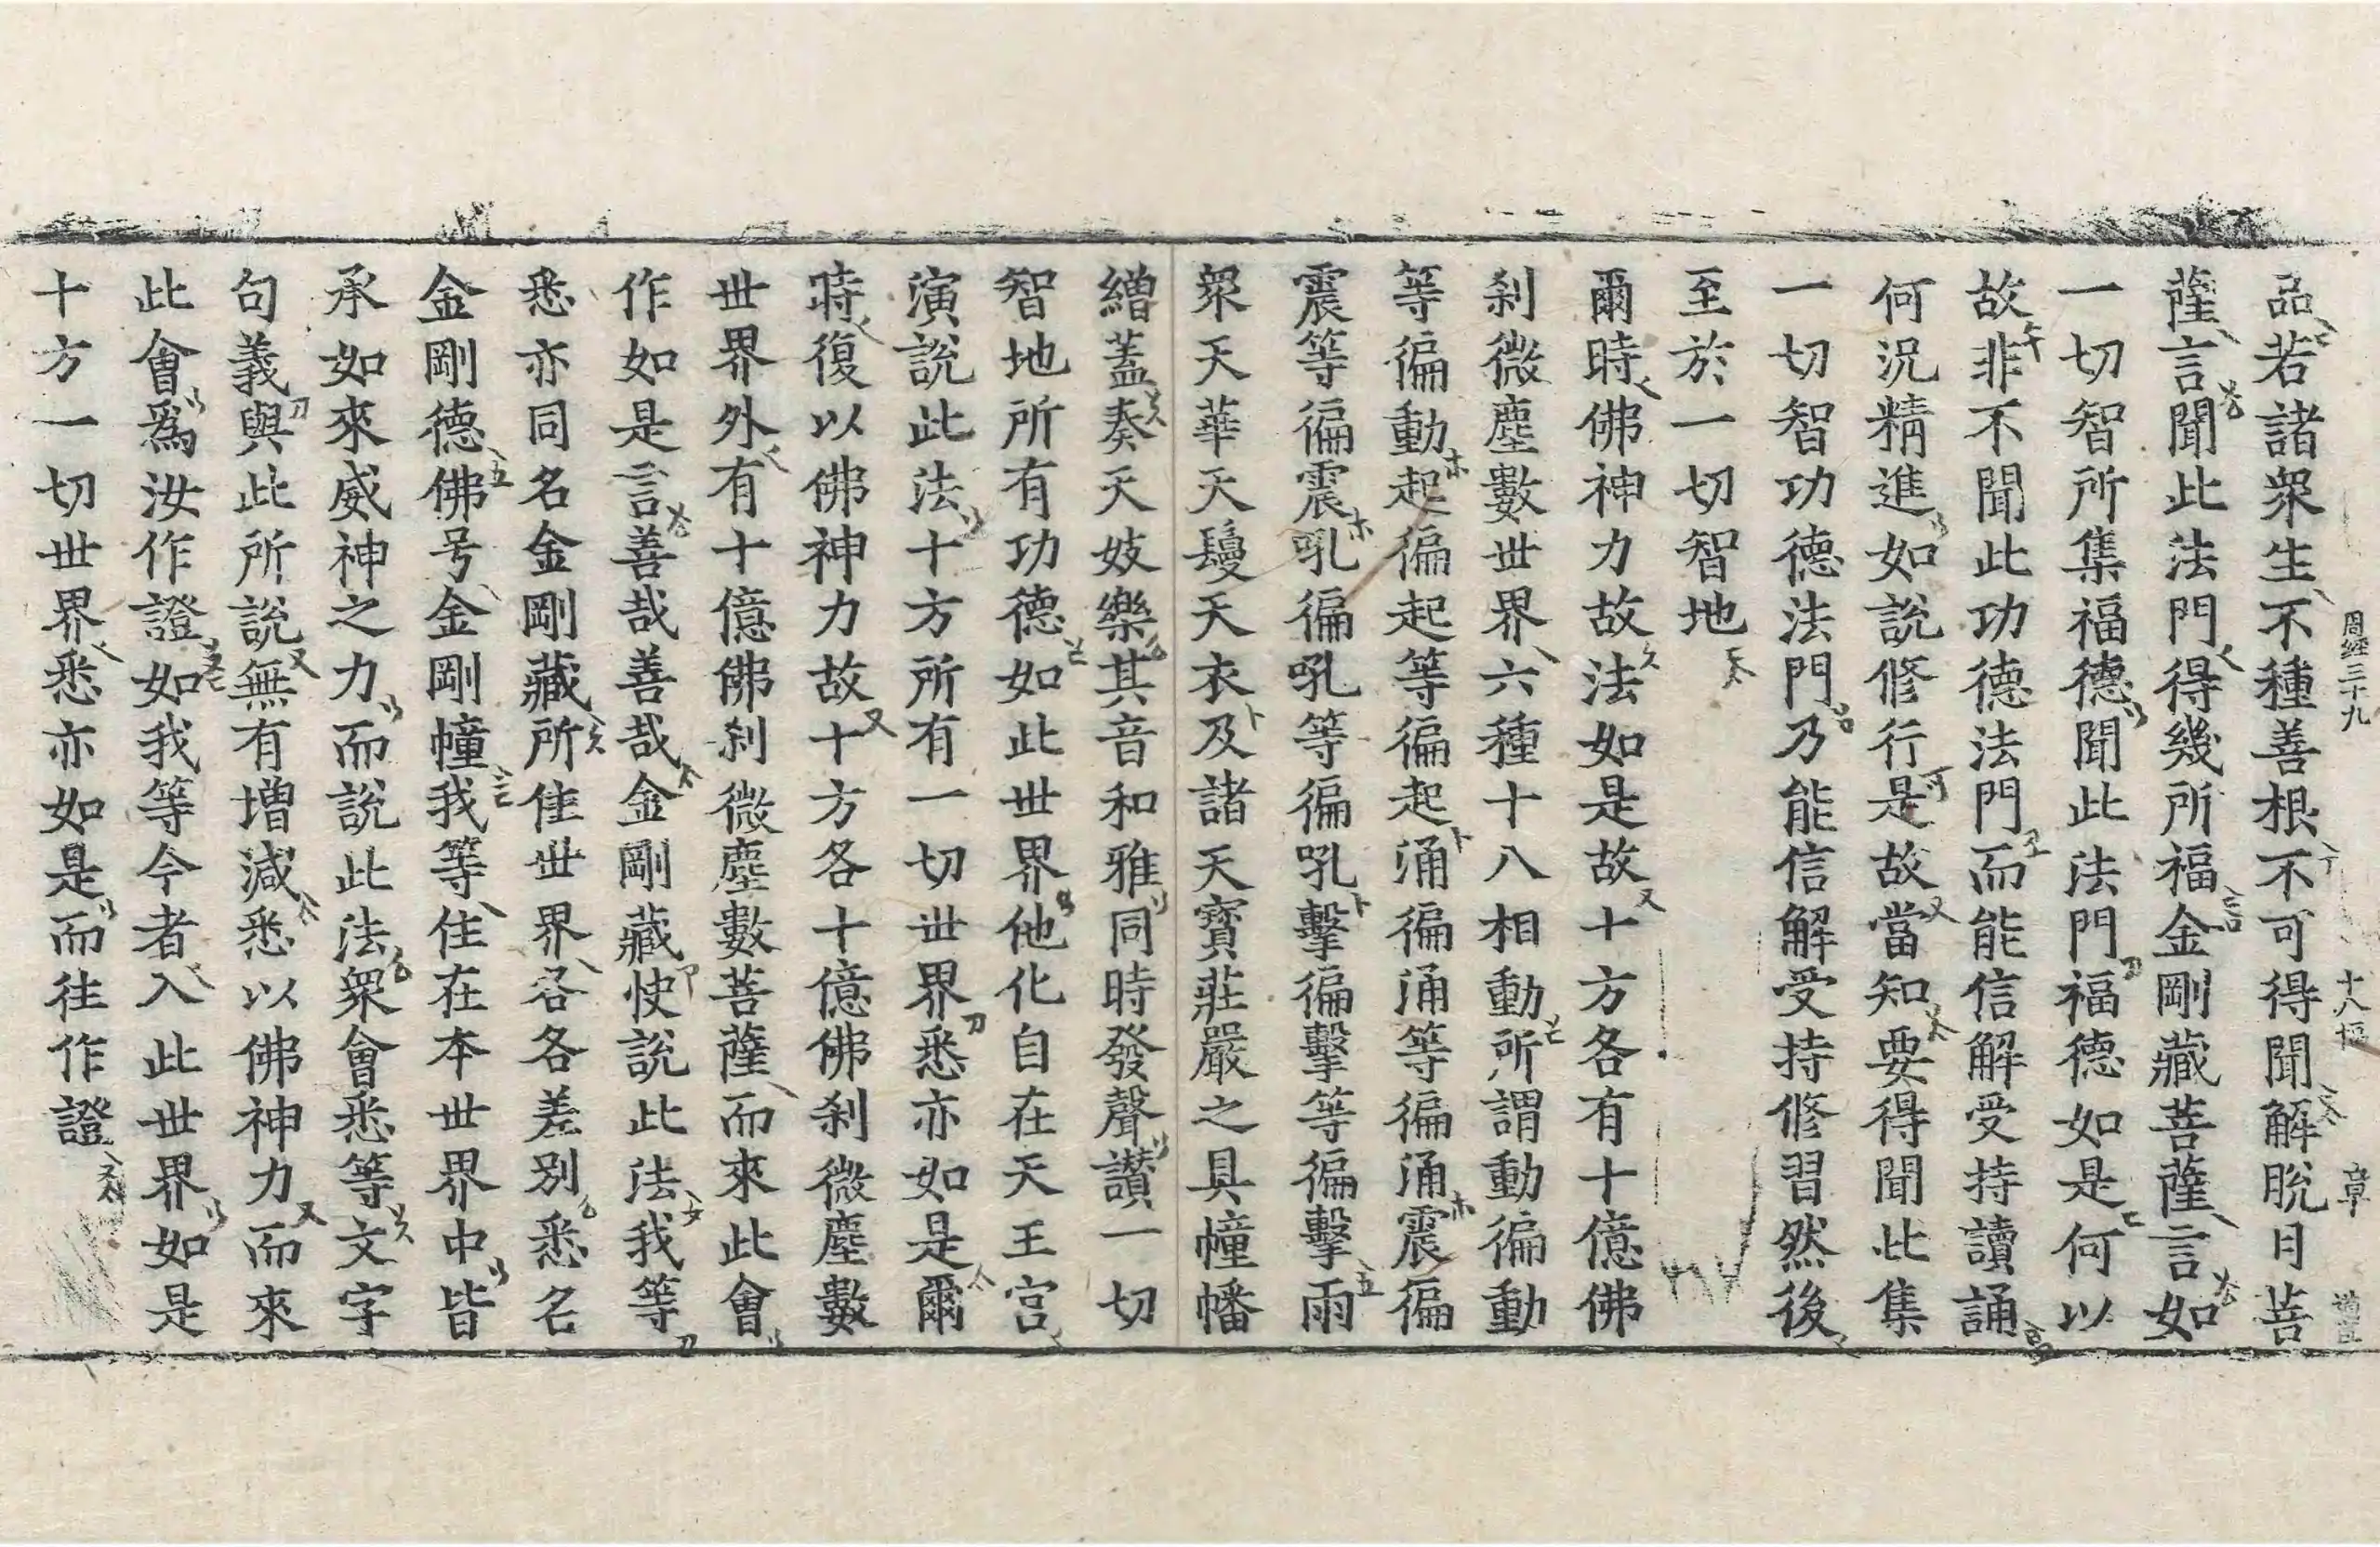 周經三十九 十八幅 章
品若諸衆生不種善根不可得聞解脫月菩
薩言聞此法門得幾所福金剛藏菩薩言如
一切智所集福德聞此法門福德如是何以
故非不聞此功德法門而能信解受持讀誦
何況精進如說修行是故當知要得聞此集
一切智功德法門乃能信解受持修習然後
至於一切智地
爾時佛神力故法如是故十方各有十億佛
刹微塵數世界六種十八相動所謂動徧動
等徧動起徧起等徧起涌徧涌等徧涌震徧
震等徧震吼徧吼等徧吼擊徧擊等徧擊雨
衆天華天鬘天衣及諸天寶莊嚴之具幢幡
繒蓋奏天妓樂其音和雅同時發聲讚一切
智地所有功德如此世界他化自在天王宮
演說此法十方所有一切世界悉亦如是爾
時復以佛神力故十方各十億佛刹微塵數
世界外有十億佛刹微塵數菩薩而來此會
作如是言善哉善哉金剛藏快說此法我等
悉亦同名金剛藏所住世界各各差別悉名
金剛德佛号金剛幢我等住在本世界中皆
承如來威神之力而說此法衆會悉等文字
句義與此所說無有增減悉以佛神力而來
此會爲汝作證如我等今者入此世界如是
十方一切世界悉亦如是而往作證